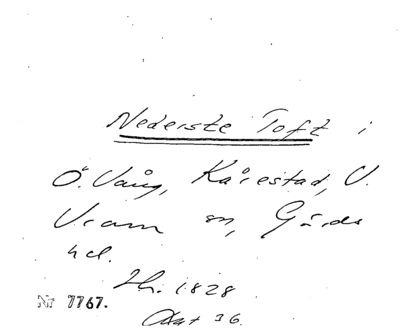 Nederste Toft i
Ö. Vång, Kårestad, V.
Vram sn, Gärds
hd.
Hr. 1828
Nr 7767.
Akt 36